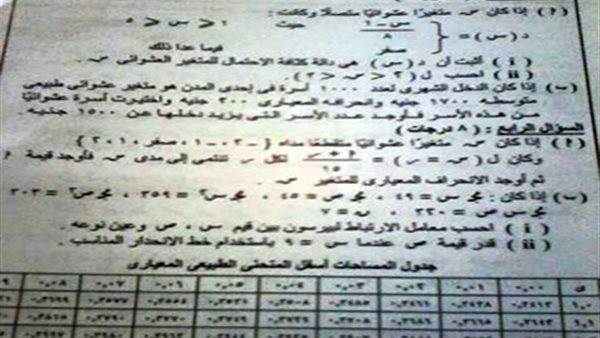 ( أ ) إذا كان س متغيرًا عشوائيًا متصلاً وكانت :
د ( س ) = { س − ١ / ٨ حيث ١ < س < ٥
صفر فيما عدا ذلك
( i ) أثبت أن د ( س ) هى دالة كثافة الاحتمال للمتغير العشوائى س .
( ii ) احسب ل ( ٢ < س < ٣ ) .
( ب ) إذا كان الدخل الشهرى لعدد ١٠٠٠ أسرة فى إحدى المدن هو متغير عشوائى طبيعى
متوسطه ١٧٠٠ جنيه وانحرافه المعيارى ٢٠٠ جنيه واختيرت أسرة عشوائيًا
من هذه الأسر فأوجد عدد الأسر التى يزيد دخلها عن ١٥٠٠ جنيه .
السؤال الرابع : ( ٨ درجات )
( أ ) إذا كان س متغيرًا عشوائيًا متقطعًا مداه { − ٢ ، − ١ ، صفر ، ١ ، ٢ }
وكان ل ( س = ر ) = أ + ر / ١٥ لكل ر تنتمى إلى مدى س فأوجد قيمة أ
ثم أوجد الانحراف المعيارى للمتغير س .
( ب ) إذا كان : مجـ س = ٤٩ ، مجـ ص = ٤٥ ، مجـ س٢ = ٣٥٩ ، مجـ ص٢ = ٣٠٣
مجـ س ص = ٣٢٠ ، ن = ٧
( i ) احسب معامل الارتباط لبيرسون بين قيم س ، ص وعين نوعه .
( ii ) قدر قيمة ص عندما س = ٩ باستخدام خط الانحدار المناسب .
جدول المساحات أسفل المنحنى الطبيعى المعيارى
ى ٠,٠٠ ٠,٠١ ٠,٠٢ ٠,٠٣ ٠,٠٤ ٠,٠٥ ٠,٠٦ ٠,٠٧ ٠,٠٨
١,٠ ٠,٣٤١٣ ٠,٣٤٣٨ ٠,٣٤٨٥ ٠,٣٥٠٨ ٠,٣٥٣١ ٠,٣٥٥٤ ٠,٣٥٧٧ ٠,٣٥٩٩
١,١ ٠,٣٧٩٠ ٠,٣٨١٠